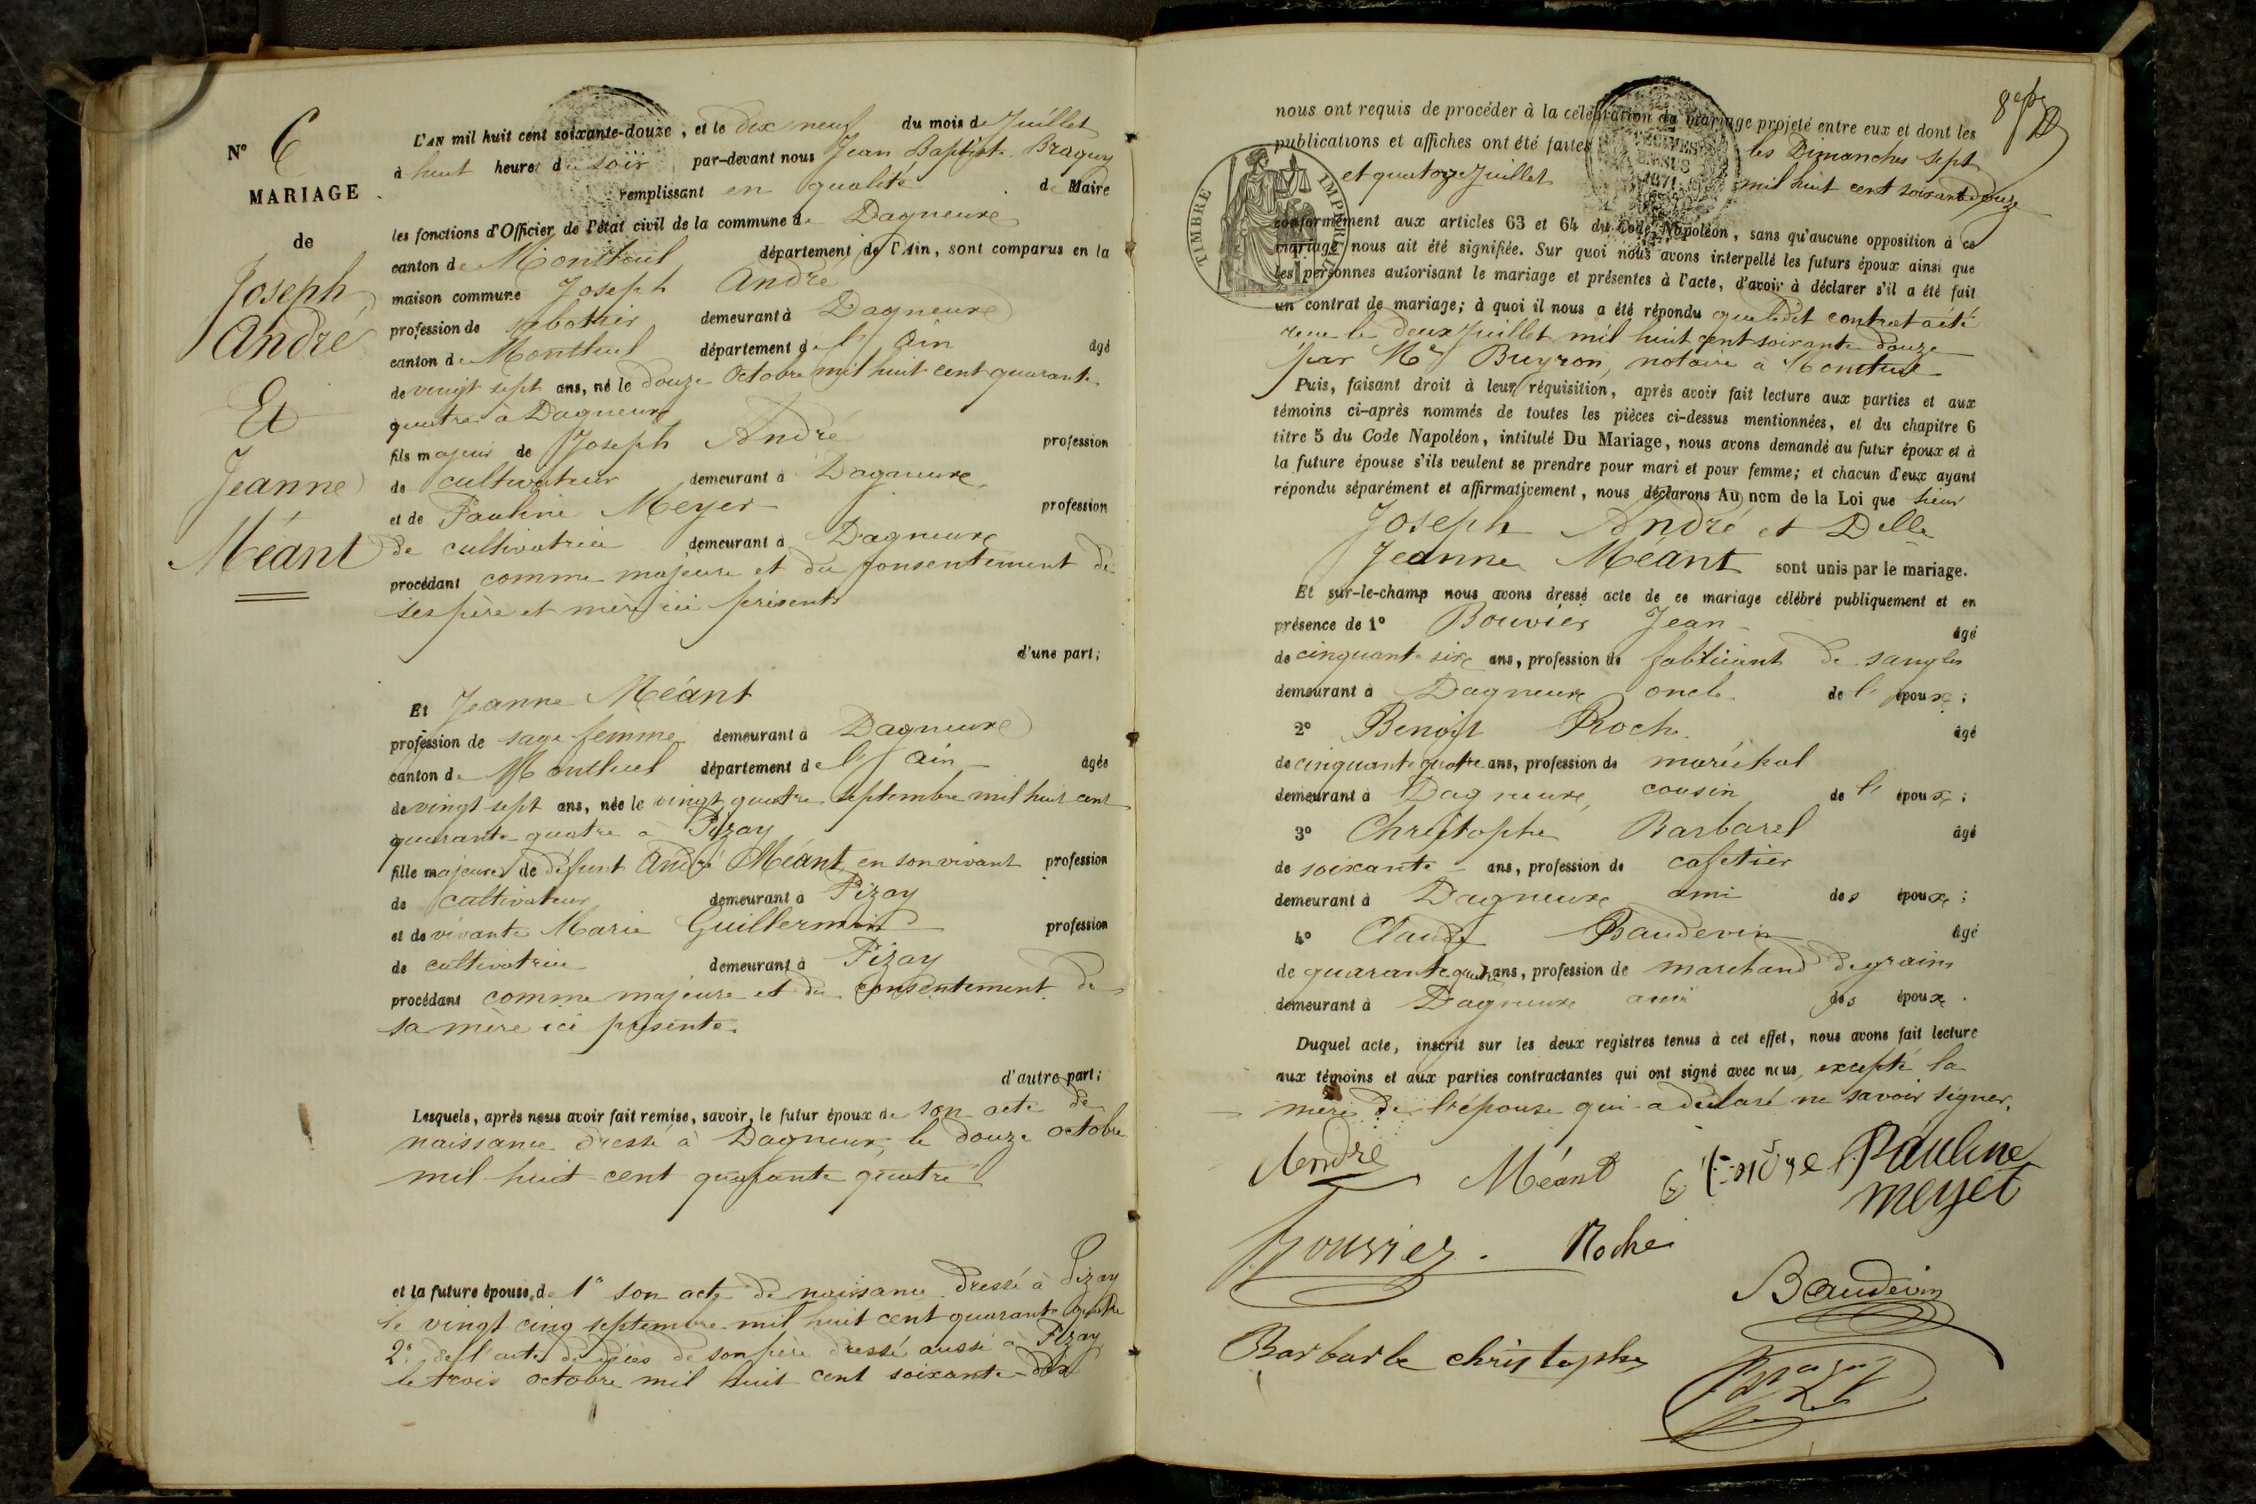 N° 6
MARIAGE
de
Joseph
André
Et
Jeanne
Méant
L'AN mil huit cent soixante-douze, et le dix neuf du mois de Juillet
à huit heures du soir par-devant nous Jean Baptiste Braguy
remplissant en qualité de Maire
les fonctions d'Officier de l'état civil de la commune de Dagneux
canton de Montluel département de l'Ain, sont comparus en la
maison commune Joseph André
profession de sabotier demeurant à Dagneux
canton de Montluel département de l'Ain âgé
de vingt sept ans, né le douze Octobre mil huit cent quarante
quatre à Dagneux
fils majeur de Joseph André profession
de cultivateur demeurant à Dagneux
et de Pauline Meyer profession
de cultivatrice demeurant à Dagneux
procédant comme majeure et du consentement de
ses père et mère ici présents
d'une part;
Et Jeanne Méant
profession de sage femme demeurant à Dagneux
canton de Montluel département de l'Ain âgée
de vingt sept ans, née le vingt quatre septembre mil huit cent
quarante quatre à Pizay
fille majeure de défunt André Méant en son vivant profession
de cultivateur demeurant à Pizay
et de vivante Marie Guillermin profession
de cultivatrice demeurant à Pizay
procédant comme majeure et du consentement de
sa mère ici présente.
d'autre part;
Lesquels, après nous avoir fait remise, savoir, le futur époux de son acte de
naissance dressé à Dagneux, le douze octobre
mil huit cent quarante quatre
et la future épouse, de 1° son acte de naissance dressé à Pizay
le vingt cinq septembre mil huit cent quarante quatre
2° de l'acte de décès de son père dressé aussi à Pizay
le trois octobre mil huit cent soixante-dix
nous ont requis de procéder à la célébration du mariage projeté entre eux et dont les
publications et affiches ont été faites les Dimanches sept
et quatorze Juillet mil huit cent soixante douze
TIMBRE IMPERIAL
1871
conformément aux articles 63 et 64 du Code Napoléon, sans qu'aucune opposition à ce
mariage nous ait été signifiée. Sur quoi nous avons interpellé les futurs époux ainsi que
les personnes autorisant le mariage et présentes à l'acte, d'avoir à déclarer s'il a été fait
un contrat de mariage; à quoi il nous a été répondu que ledit contrat a été
reçu le deux Juillet mil huit cent soixante douze
par Me Buyron, notaire à Montluel
Puis, faisant droit à leur réquisition, après avoir fait lecture aux parties et aux
témoins ci-après nommés de toutes les pièces ci-dessus mentionnées, et du chapitre 6
titre 5 du Code Napoléon, intitulé Du Mariage, nous avons demandé au futur époux et à
la future épouse s'ils veulent se prendre pour mari et pour femme; et chacun d'eux ayant
répondu séparément et affirmativement, nous déclarons Au nom de la Loi que sieur
Joseph André et Delle
Jeanne Méant sont unis par le mariage.
Et sur-le-champ nous avons dressé acte de ce mariage célébré publiquement et en
présence de 1° Bouvier Jean âgé
de cinquante six ans, profession de fabricant de sangles
demeurant à Dagneux oncle de l'épouse;
2° Benoit Roche âgé
de cinquante quatre ans, profession de maréchal
demeurant à Dagneux, cousin de l'épouse;
3° Christophe Barbarel âgé
de soixante ans, profession de cafetier
demeurant à Dagneux ami des époux;
4° Claude Baudevin âgé
de quarante quatre ans, profession de marchand de grains
demeurant à Dagneux ami des époux.
Duquel acte, inscrit sur les deux registres tenus à cet effet, nous avons fait lecture
aux témoins et aux parties contractantes qui ont signé avec nous, excepté la
mère de l'épouse qui a déclaré ne savoir signer.
André Méant Pauline
meyet
Bouvier. Roche
Baudevin
Barbarle christophe